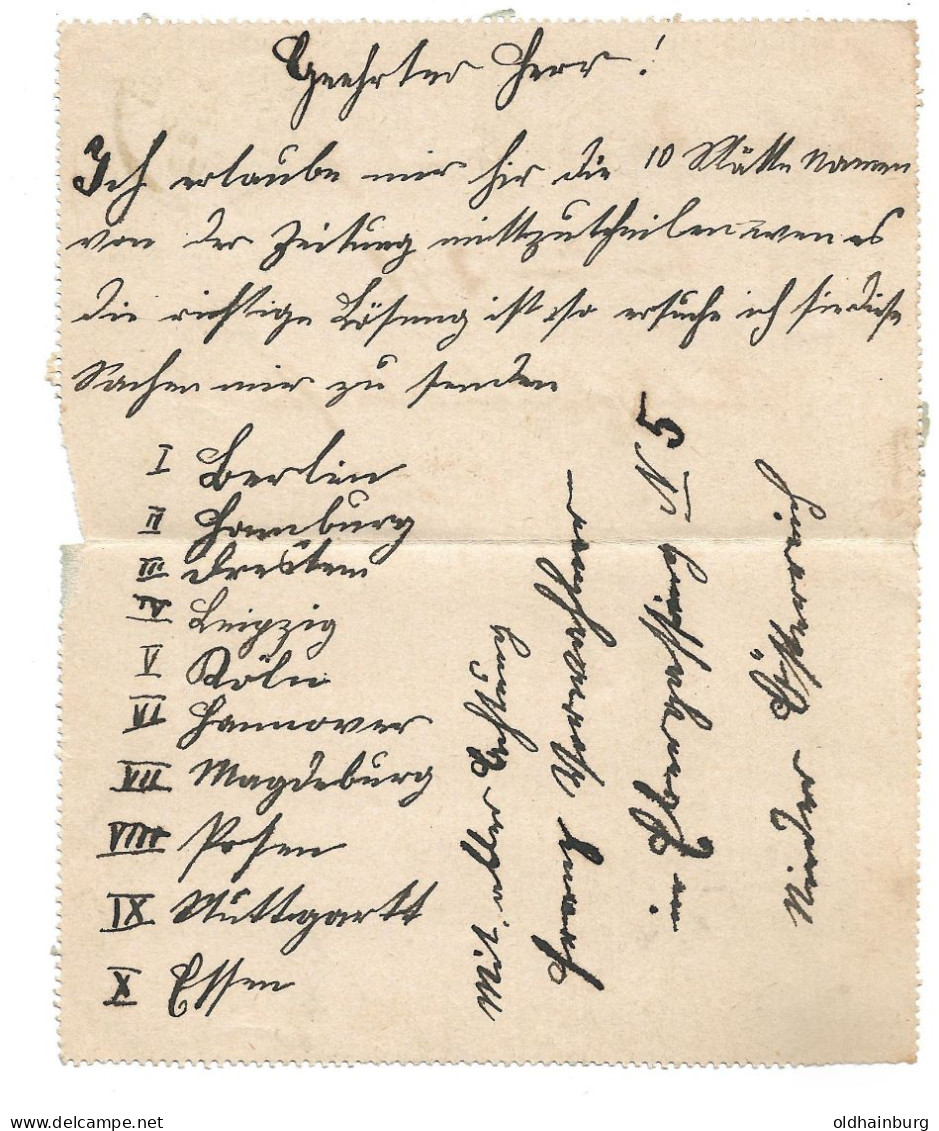 Geehrter Herr!
Ich erlaube mir hir die 10 Städte Namen
von der Zeitung mittzutheilen wen es
die richtige Lösung ist so ersuche ich sie diese
Sachen mir zu senden
I Berlin
II Hamburg
III Dresden
IV Leipzig
V Köln
VI Hannover
VII Magdeburg
VIII Posen
IX Stuttgartt
X Essen
Mit aller Achtung
Franz
in N 5
Nieder Österreich
oldhainburg